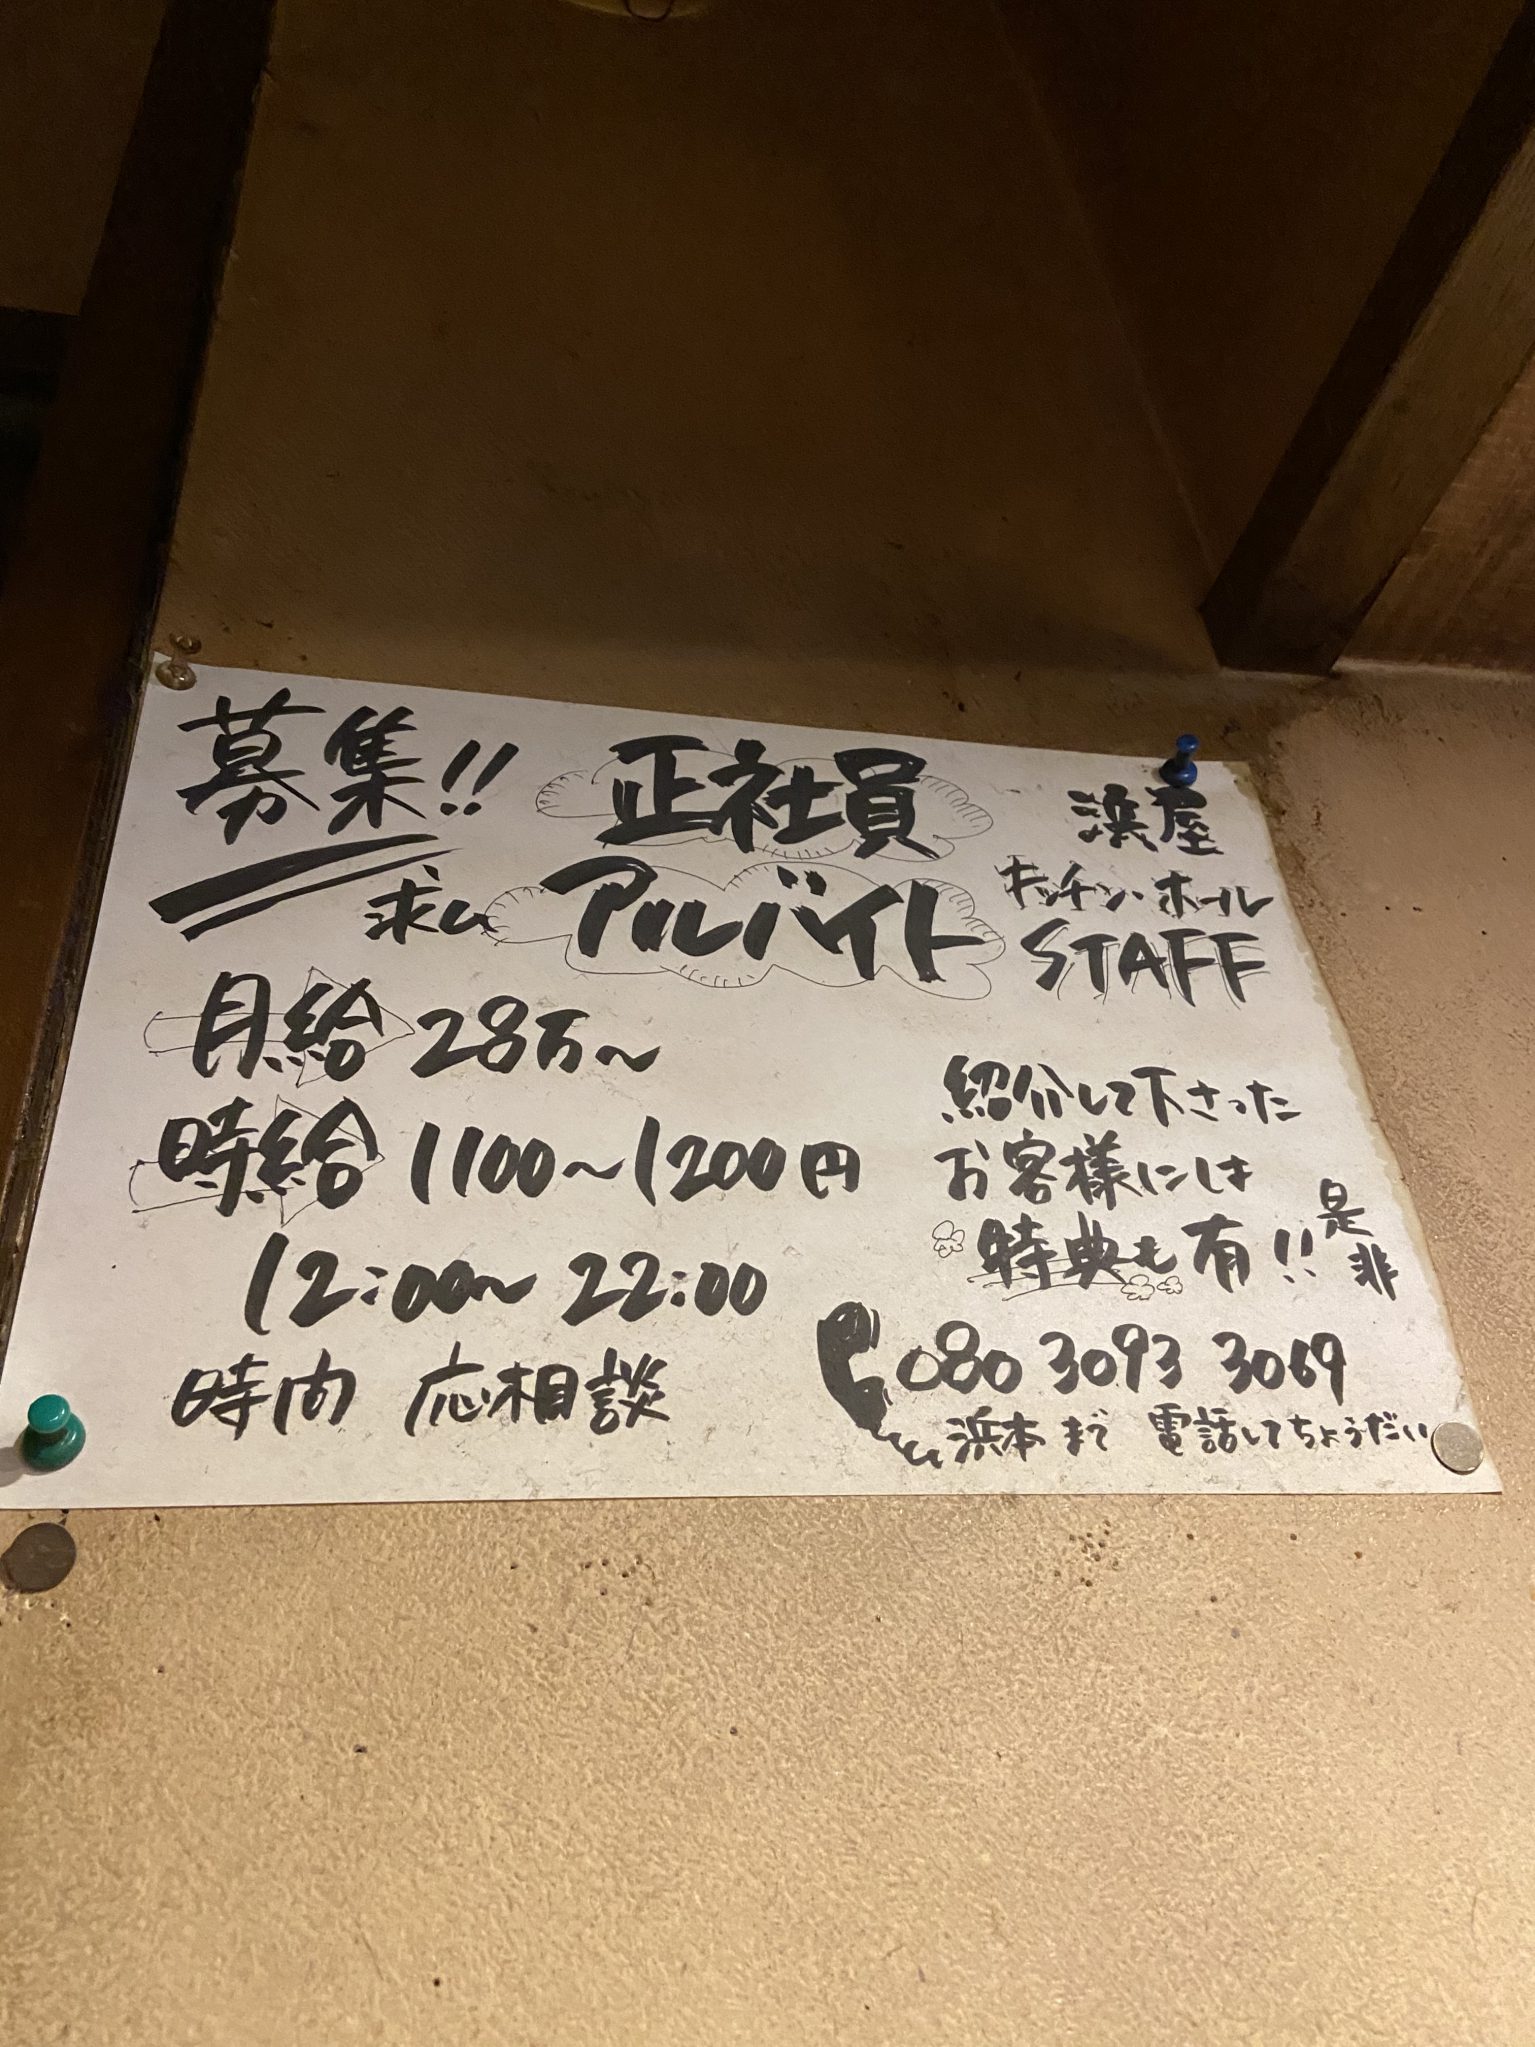 募集!! 正社員
求む アルバイト
浜屋
キッチン・ホール
STAFF
月給 28万〜
時給 1100〜1200円
12:00〜22:00
時間 応相談
紹介して下さった
お客様には
特典も有!! 是非
080 3093 3069
浜本まで 電話してちょうだい